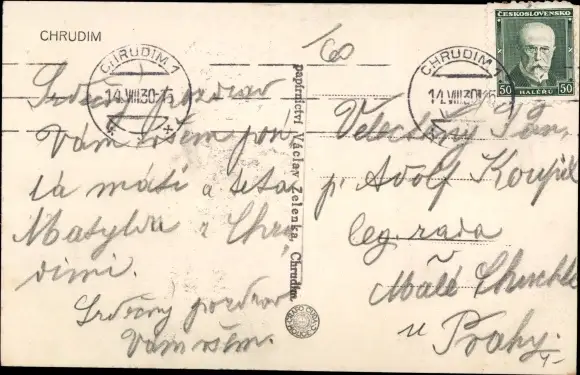 CHRUDIM
/60
ČESKOSLOVENSKO
50 HALÉŘŮ 50
CHRUDIM 1
14.VIII.30-15
CHRUDIM 1
14.VIII.30-15
Srdečný pozdrav
Vám všem posí-
lá máti a teta
Matylda z Chru-
dimi.
Srdečný pozdrav
Vám všem.
papírnictví Václav Zelenka, Chrudim.
Velectěný Pán,
p. Adolf
leg. rada
Malé Chuchle
u Prahy.